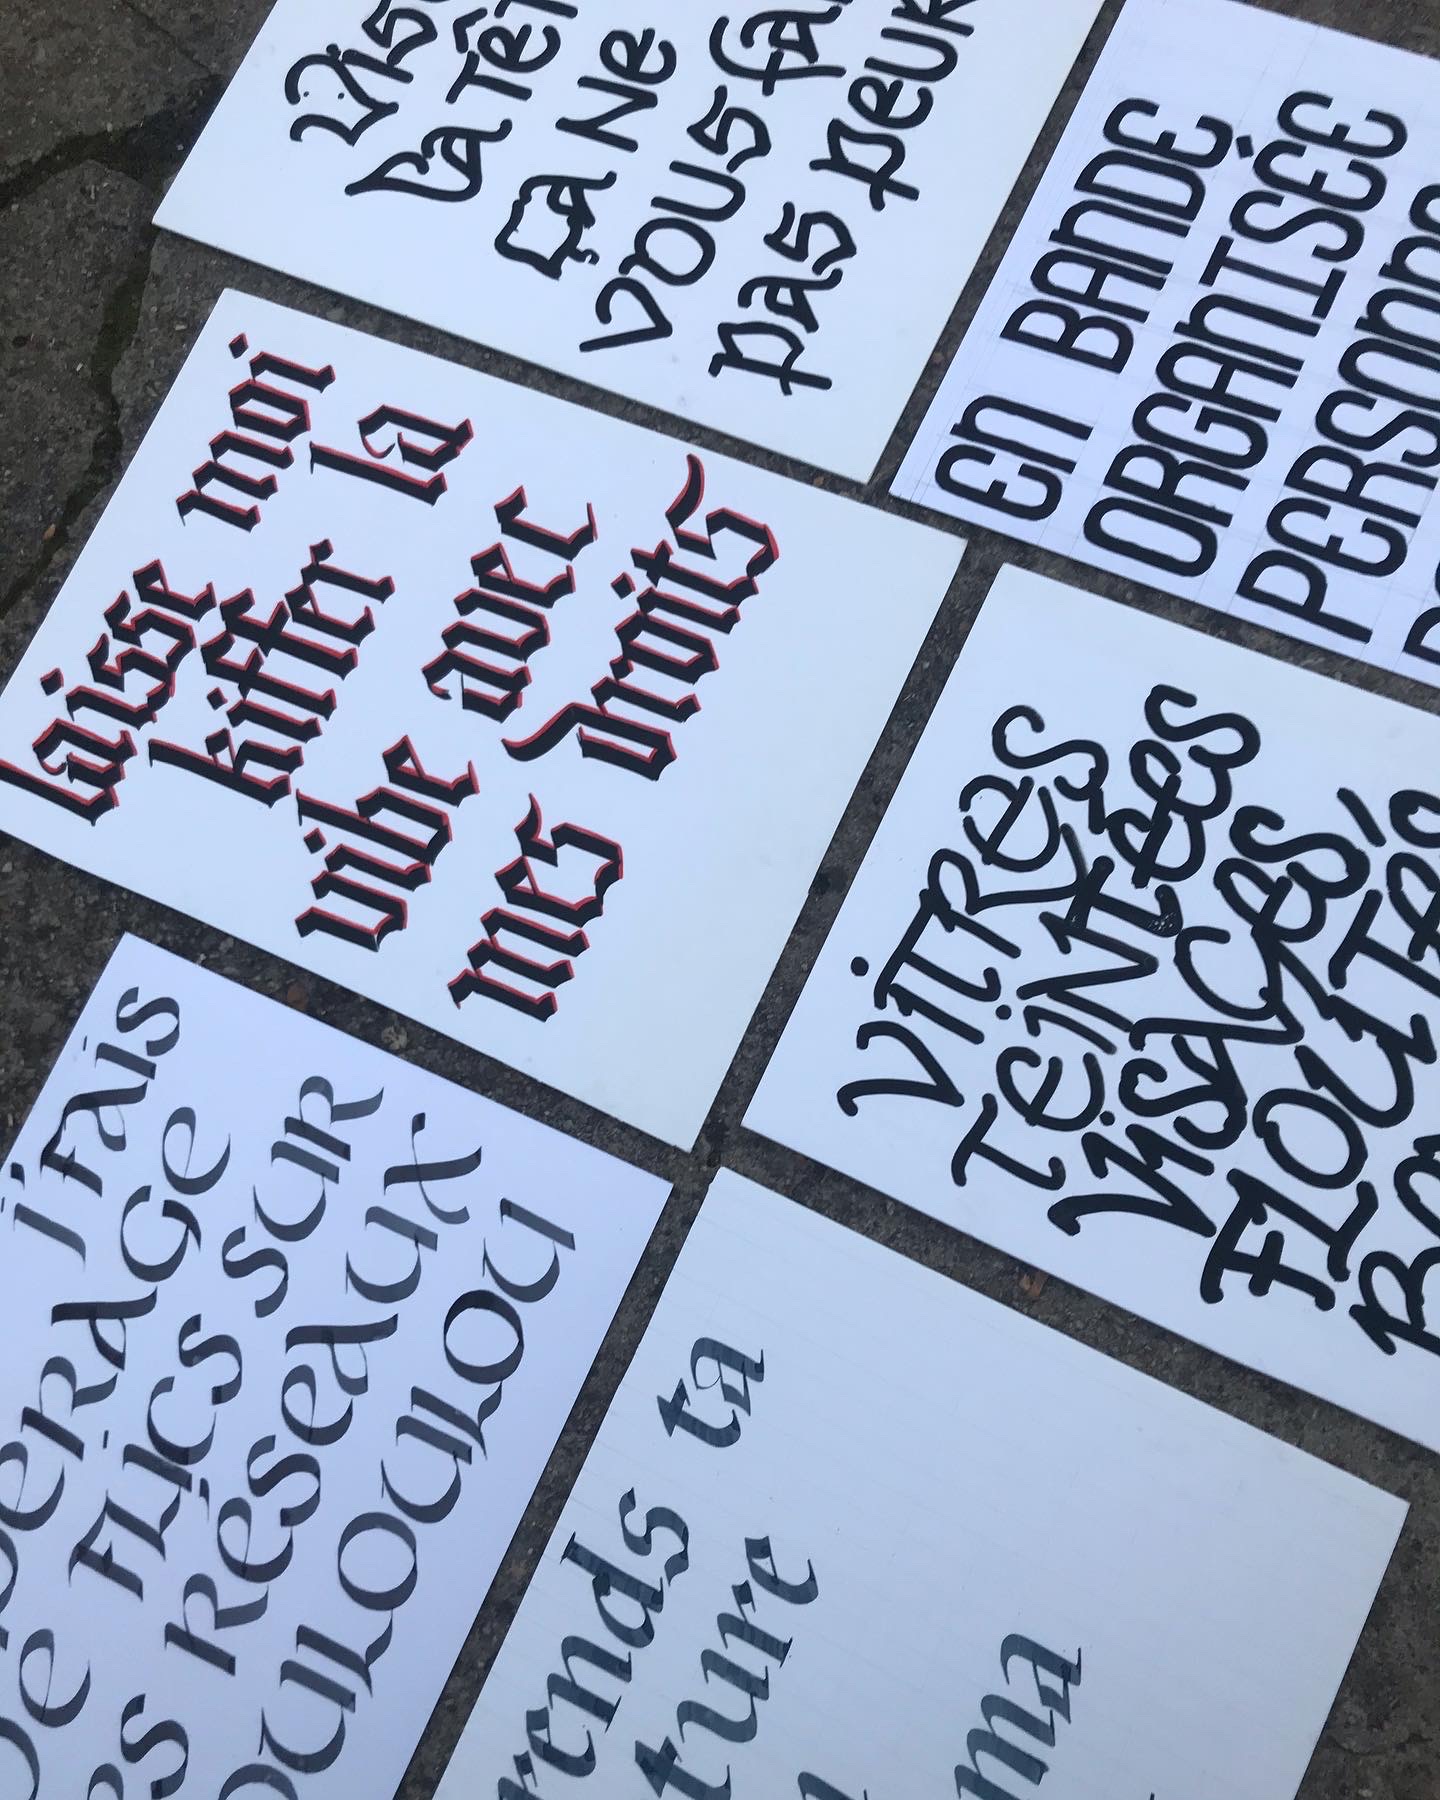 Vis
La Tê
ça Ne
vous fai
pas peur
En BAnDE
ORGAnISÉE
PERSOnnE
laisse moi
kiffer la
vibe avec
mes droits
ViTRes
TeiNTées
Visages,
FLOUTés
J'FAiS
eRAGe
De FLiCS SUR
es RéSeAUX
OULOULOU
rends ta
ture
ma